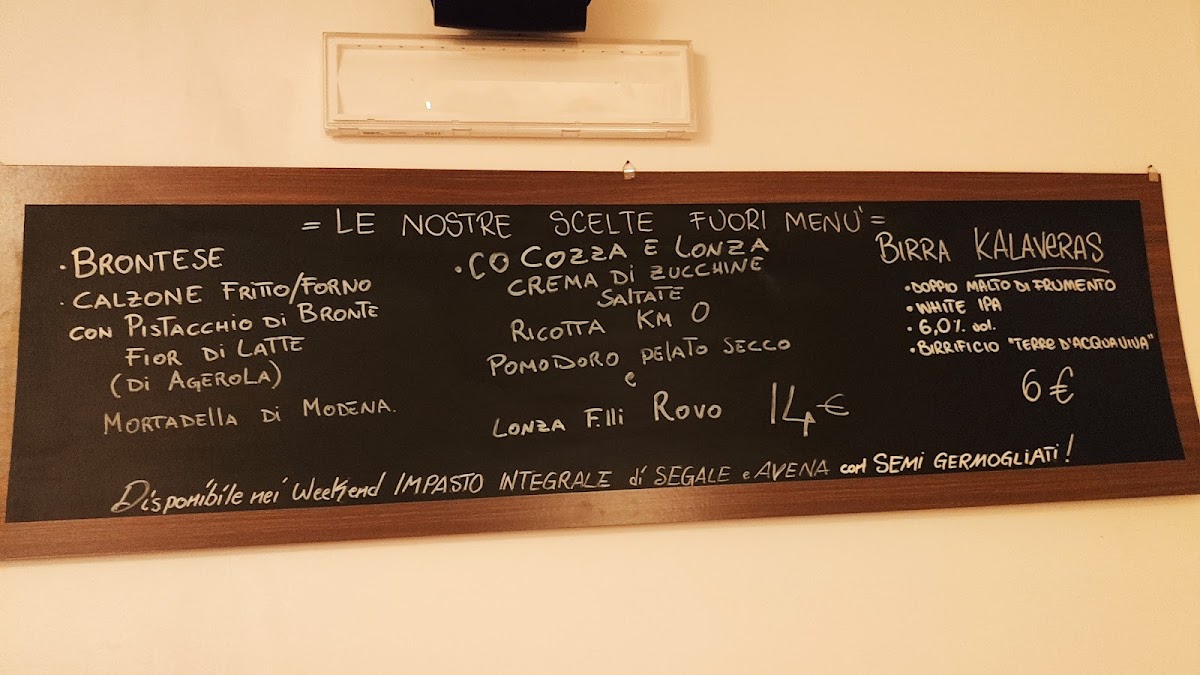 = LE NOSTRE SCELTE FUORI MENU' =
• BRONTESE
• CALZONE FRITTO/FORNO
CON PISTACCHIO DI BRONTE
FIOR DI LATTE
(DI AGEROLA)
MORTADELLA DI MODENA.
• CO COZZA E LONZA
CREMA DI ZUCCHINE
SALTATE
RICOTTA KM 0
POMODORO PELATO SECCO
e
LONZA F.lli ROVO 14€
BIRRA KALAVERAS
• DOPPIO MALTO DI FRUMENTO
• WHITE IPA
• 6,0% vol.
• BIRRIFICIO "TERRE D'ACQUAVIVA"
6€
Disponibile nei Weekend IMPASTO INTEGRALE di SEGALE e AVENA con SEMI GERMOGLIATI!